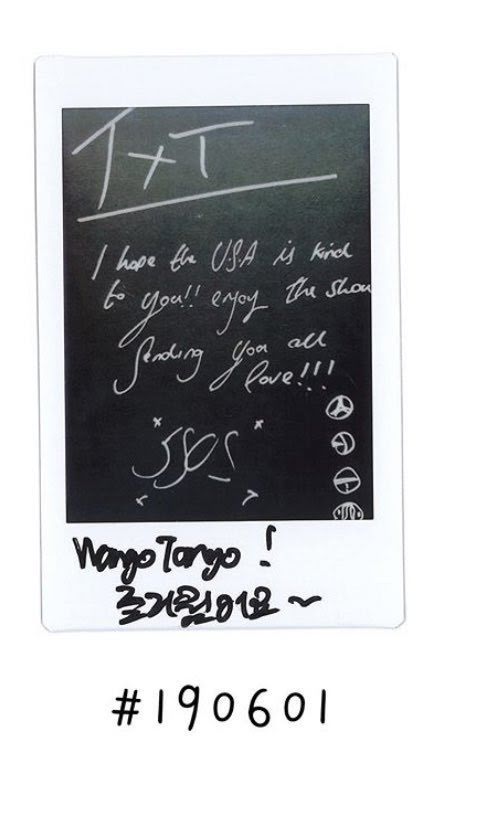 TXT
I hope the U.S.A is kind
to you!! enjoy the show
Sending you all
love!!!
5SOS
Wango Tango !
즐거웠어요~
#190601